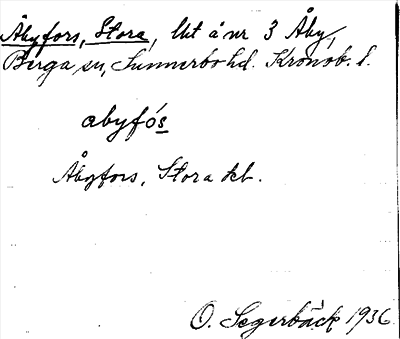 Åbyfors, Stora, lht å nr 3 Åby,
Berga sn, Sunnerbo hd. Kronob. l.
abyfós
Åbyfors, Stora kb.
O. Segerbäck 1936